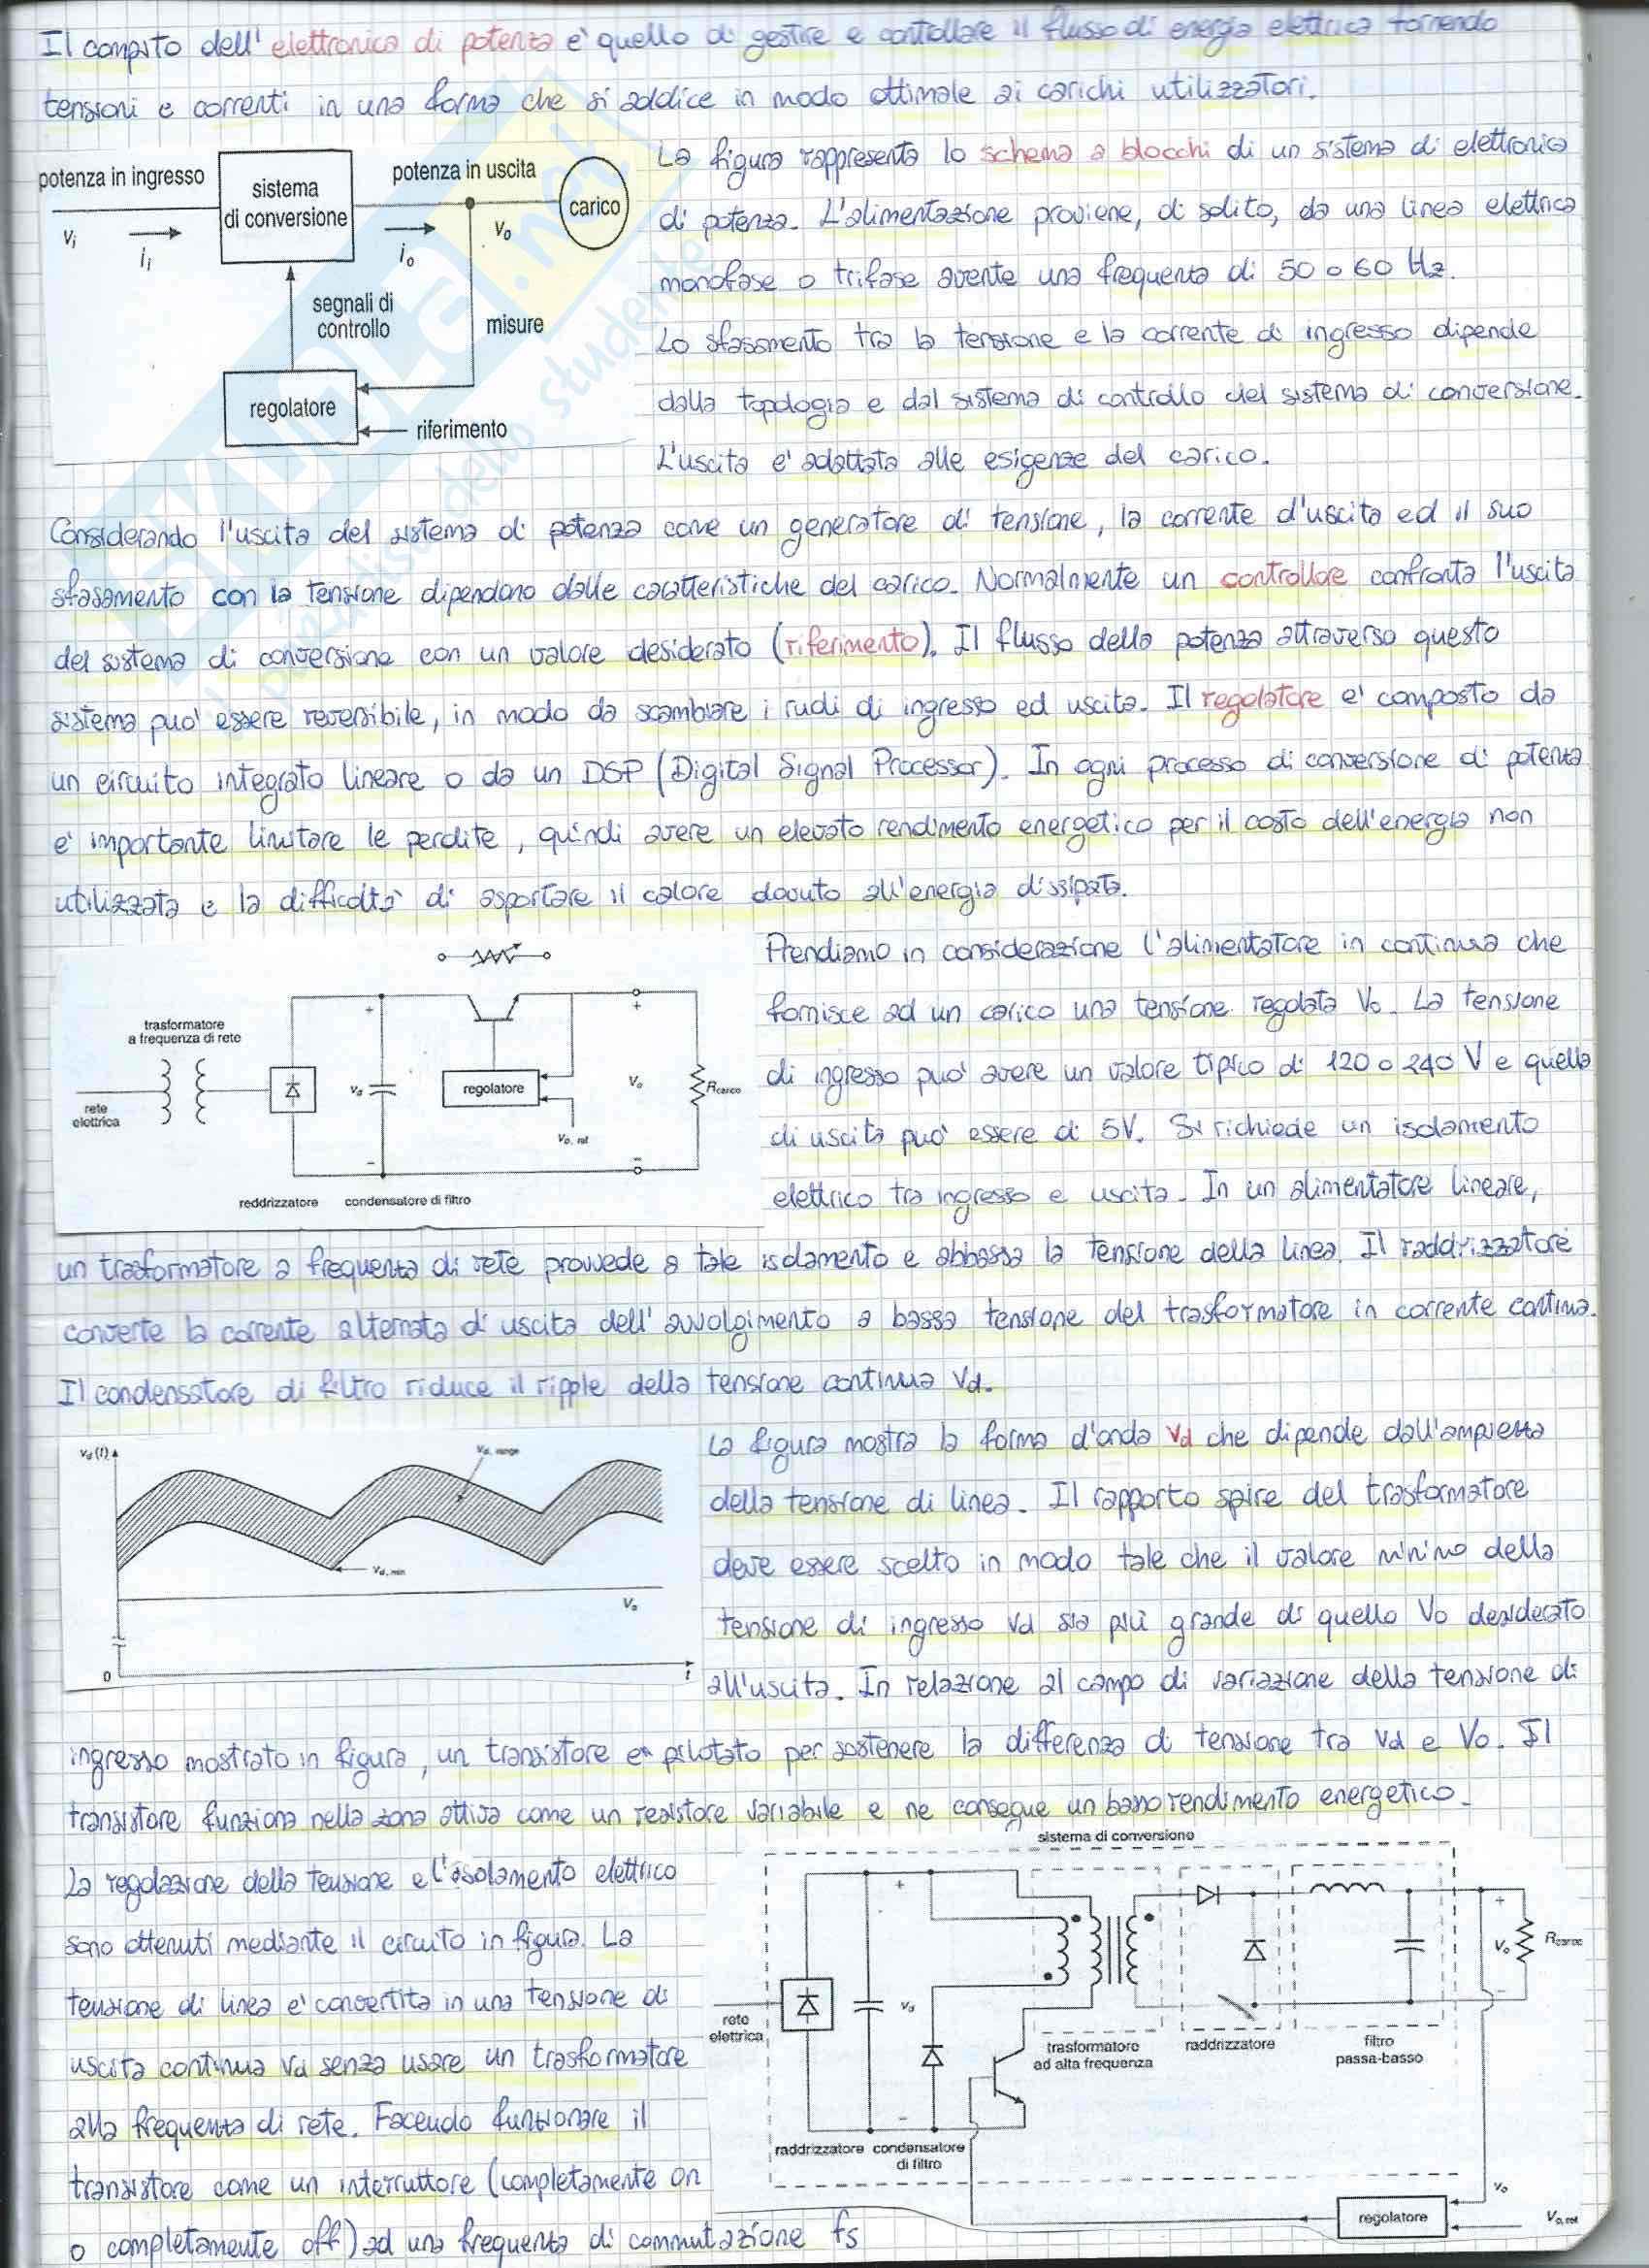 Il compito dell'elettronica di potenza e' quello di gestire e controllare il flusso di energia elettrica fornendo
tensioni e correnti in una forma che si addice in modo ottimale ai carichi utilizzatori.
potenza in ingresso
sistema
di conversione
potenza in uscita
carico
vi
ii
io
vo
segnali di
controllo
misure
regolatore
riferimento
La figura rappresenta lo schema a blocchi di un sistema di elettronica
di potenza. L'alimentazione proviene, di solito, da una linea elettrica
monofase o trifase avente una frequenza di 50 o 60 Hz.
Lo sfasamento tra la tensione e la corrente di ingresso dipende
dalla topologia e dal sistema di controllo del sistema di conversione.
L'uscita e' adattata alle esigenze del carico.
Considerando l'uscita del sistema di potenza come un generatore di tensione, la corrente d'uscita ed il suo
sfasamento con la tensione dipendono dalle caratteristiche del carico. Normalmente un controllore confronta l'uscita
del sistema di conversione con un valore desiderato (riferimento). Il flusso della potenza attraverso questo
sistema puo' essere reversibile, in modo da scambiare i ruoli di ingresso ed uscita. Il regolatore e' composto da
un circuito integrato lineare o da un DSP (Digital Signal Processor). In ogni processo di conversione di potenza
e' importante limitare le perdite, quindi avere un elevato rendimento energetico per il costo dell'energia non
utilizzata e la difficolta' di asportare il calore dovuto all'energia dissipata.
trasformatore
a frequenza di rete
rete
elettrica
vd
regolatore
Vo
Vo, ref
Rcarico
reddrizzatore
condensatore di filtro
Prendiamo in considerazione l'alimentatore in continua che
fornisce ad un carico una tensione regolata Vo. La tensione
di ingresso puo' avere un valore tipico di 120 o 240 V e quella
di uscita puo' essere di 5V. Si richiede un isolamento
elettrico tra ingresso e uscita. In un alimentatore lineare,
un trasformatore a frequenza di rete provvede a tale isolamento e abbassa la tensione della linea. Il raddrizzatore
converte la corrente alternata di uscita dell'avvolgimento a bassa tensione del trasformatore in corrente continua.
Il condensatore di filtro riduce il ripple della tensione continua Vd.
vd (t)
Vd, range
Vd, min
Vo
0
t
La figura mostra la forma d'onda Vd che dipende dall'ampiezza
della tensione di linea. Il rapporto spire del trasformatore
deve essere scelto in modo tale che il valore minimo della
tensione di ingresso Vd sia più grande di quello Vo desiderato
all'uscita. In relazione al campo di variazione della tensione di
ingresso mostrato in figura, un transistore e' pilotato per sostenere la differenza di tensione tra Vd e Vo. Il
transistore funziona nella zona attiva come un resistore variabile e ne consegue un basso rendimento energetico.
La regolazione della tensione e l'isolamento elettrico
sono ottenuti mediante il circuito in figura. La
tensione di linea e' convertita in una tensione di
uscita continua Vd senza usare un trasformatore
alla frequenza di rete. Facendo funzionare il
transistore come un interruttore (completamente on
o completamente off) ad una frequenza di commutazione fs
sistema di conversione
rete
elettrica
vd
trasformatore
ad alta frequenza
raddrizzatore
filtro
passa-basso
Vo
Rcarico
raddrizzatore
condensatore
di filtro
regolatore
Vo
Vo, ref